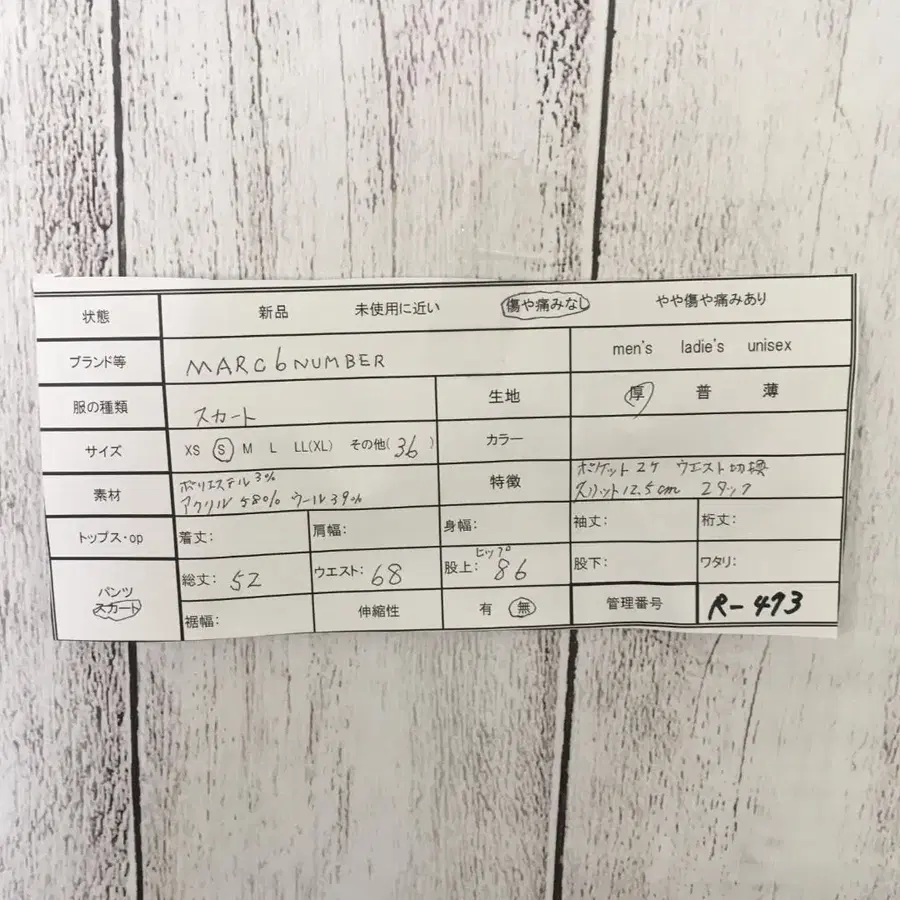 状態 新品 未使用に近い 傷や痛みなし やや傷や痛みあり
ブランド等 MARC6NUMBER men's ladie's unisex
服の種類 スカート 生地 厚 普 薄
サイズ XS S M L LL(XL) その他(36) カラー
素材 ポリエステル3% 特徴 ポケット2ケ ウエスト切換
アクリル58% ウール39% スリット12.5cm 2タック
トップス・op 着丈: 肩幅: 身幅: 袖丈: 裄丈:
パンツ 総丈: 52 ウエスト: 68 ヒップ 股上: 86 股下: ワタリ:
スカート 裾幅: 伸縮性 有 無 管理番号 R-493